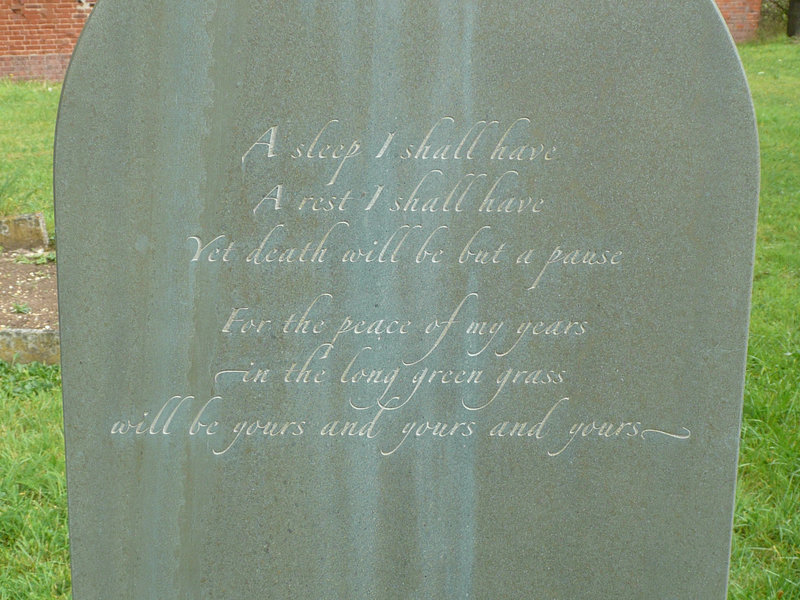 A sleep I shall have
A rest I shall have
Yet death will be but a pause
For the peace of my years
in the long green grass
will be yours and yours and yours